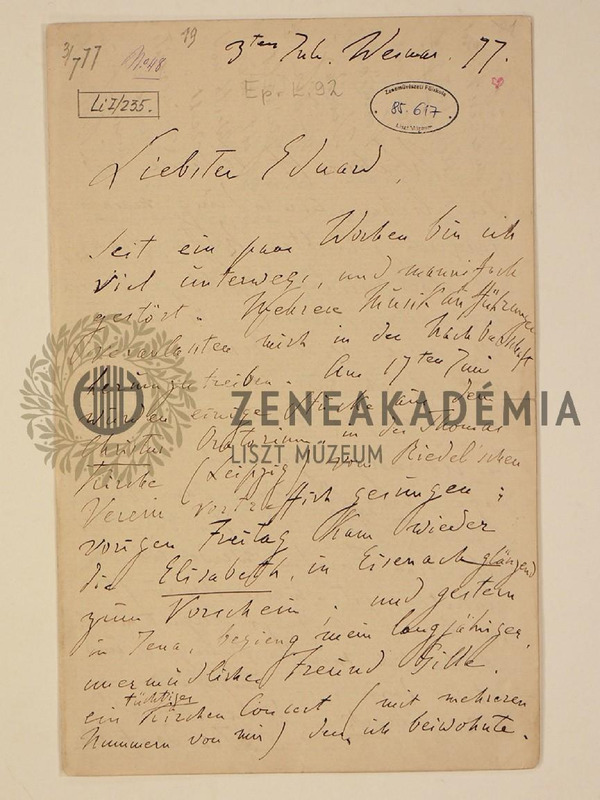 3/777
No 48
19
3ten Juli. Weimar. 77.
Li I/235.
Ep. K.92
Zeneművészeti Főiskola
85.617
Liszt Múzeum
Liebster Eduard,
Seit ein paar Wochen bin ich
viel unterwegs, und mannifach
gestört. Mehrere Musikaufführungen
veranlassten mich in der Nachbarschaft
herumzutreiben. Am 17ten Juni
wurden einige Stücke aus dem
Christus Oratorium, in der Thomas
Kirche (Leipzig) vom Riedel'schen
Verein vortrefflich gesungen;
vorigen Freitag kam wieder
die Elisabeth, in Eisenach glänzend
zum Vorschein; und gestern
in Jena, begieng mein langjähriger,
unermüdlicher Freund Gille,
ein tüchtiger Kirchen Concert (mit mehreren
Nummern von mir) dem ich beiwohnte.
ZENEAKADÉMIA
LISZT MÚZEUM